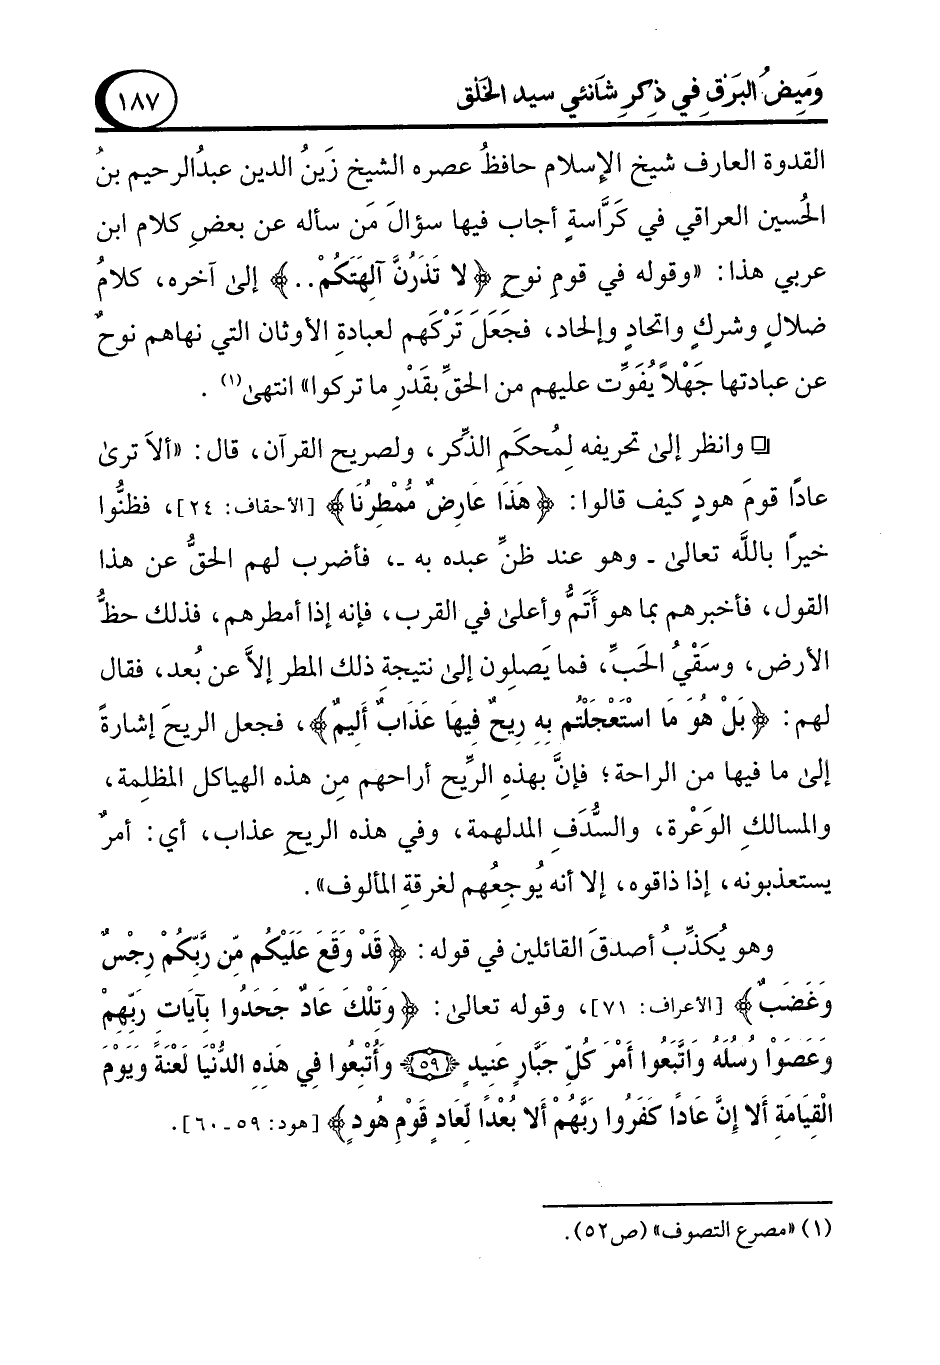 وَمِيضُ البَرْقِ في ذِكرِ شَانئي سيد الخَلْق
١٨٧
القدوة العارف شيخ الإسلام حافظُ عصره الشيخ زَينُ الدين عبدُالرحيم بنُ
الحُسين العراقي في كَرَّاسةٍ أجاب فيها سؤالَ مَن سأله عن بعضِ كلام ابن
عربي هذا: «وقوله في قومِ نوح ﴿لا تَذَرُنَّ آلِهَتَكُمْ..﴾ إلىٰ آخره، كلامُ
ضلالٍ وشركٍ واتحادٍ وإلحاد، فجَعَلَ تَرْكَهم لعبادةِ الأوثان التي نهاهم نوحٌ
عن عبادتها جَهْلاً يُفَوِّت عليهم من الحقِّ بقَدْرِ ما تركوا» انتهىٰ(١) .
❏ وانظر إلىٰ تحريفه لمُحكَمِ الذِّكر، ولصريح القرآن، قال: «ألاَ ترىٰ
عادًا قومَ هودٍ كيف قالوا: ﴿هَذَا عَارِضٌ مُّمْطِرُنَا﴾ [الأحقاف: ٢٤]، فظنُّوا
خيرًا باللَّه تعالىٰ ـ وهو عند ظنِّ عبده به ـ، فأضرب لهم الحقُّ عن هذا
القول، فأخبرهم بما هو أتَمُّ وأعلىٰ في القرب، فإنه إذا أمطرهم، فذلك حظُّ
الأرض، وسَقْيُ الحَبِّ، فما يَصلون إلىٰ نتيجةِ ذلك المطر إلاَّ عن بُعد، فقال
لهم: ﴿بَلْ هُوَ مَا اسْتَعْجَلْتُم بِهِ رِيحٌ فِيهَا عَذَابٌ أَلِيمٌ﴾، فجعل الريحَ إشارةً
إلىٰ ما فيها من الراحة؛ فإنَّ بهذه الرِّيح أراحهم مِن هذه الهياكل المظلمة،
والمسالكِ الوَعْرة، والسُّدَفِ المدلهمة، وفي هذه الريحِ عذاب، أي: أمرٌ
يستعذبونه، إذا ذاقوه، إلا أنه يُوجعُهم لغرقةِ المألوف».
وهو يُكذِّبُ أصدقَ القائلين في قوله: ﴿قَدْ وَقَعَ عَلَيْكُم مِّن رَّبِّكُمْ رِجْسٌ
وَغَضَبٌ﴾ [الأعراف: ٧١]، وقوله تعالىٰ: ﴿وَتِلْكَ عَادٌ جَحَدُوا بِآيَاتِ رَبِّهِمْ
وَعَصَوْا رُسُلَهُ وَاتَّبَعُوا أَمْرَ كُلِّ جَبَّارٍ عَنِيدٍ ﴿٥٩﴾ وَأُتْبِعُوا فِي هَذِهِ الدُّنْيَا لَعْنَةً وَيَوْمَ
الْقِيَامَةِ أَلا إِنَّ عَادًا كَفَرُوا رَبَّهُمْ أَلا بُعْدًا لِّعَادٍ قَوْمِ هُودٍ﴾ [هود: ٥٩ـ٦٠].
(١) «مصرع التصوف» (ص٥٢).